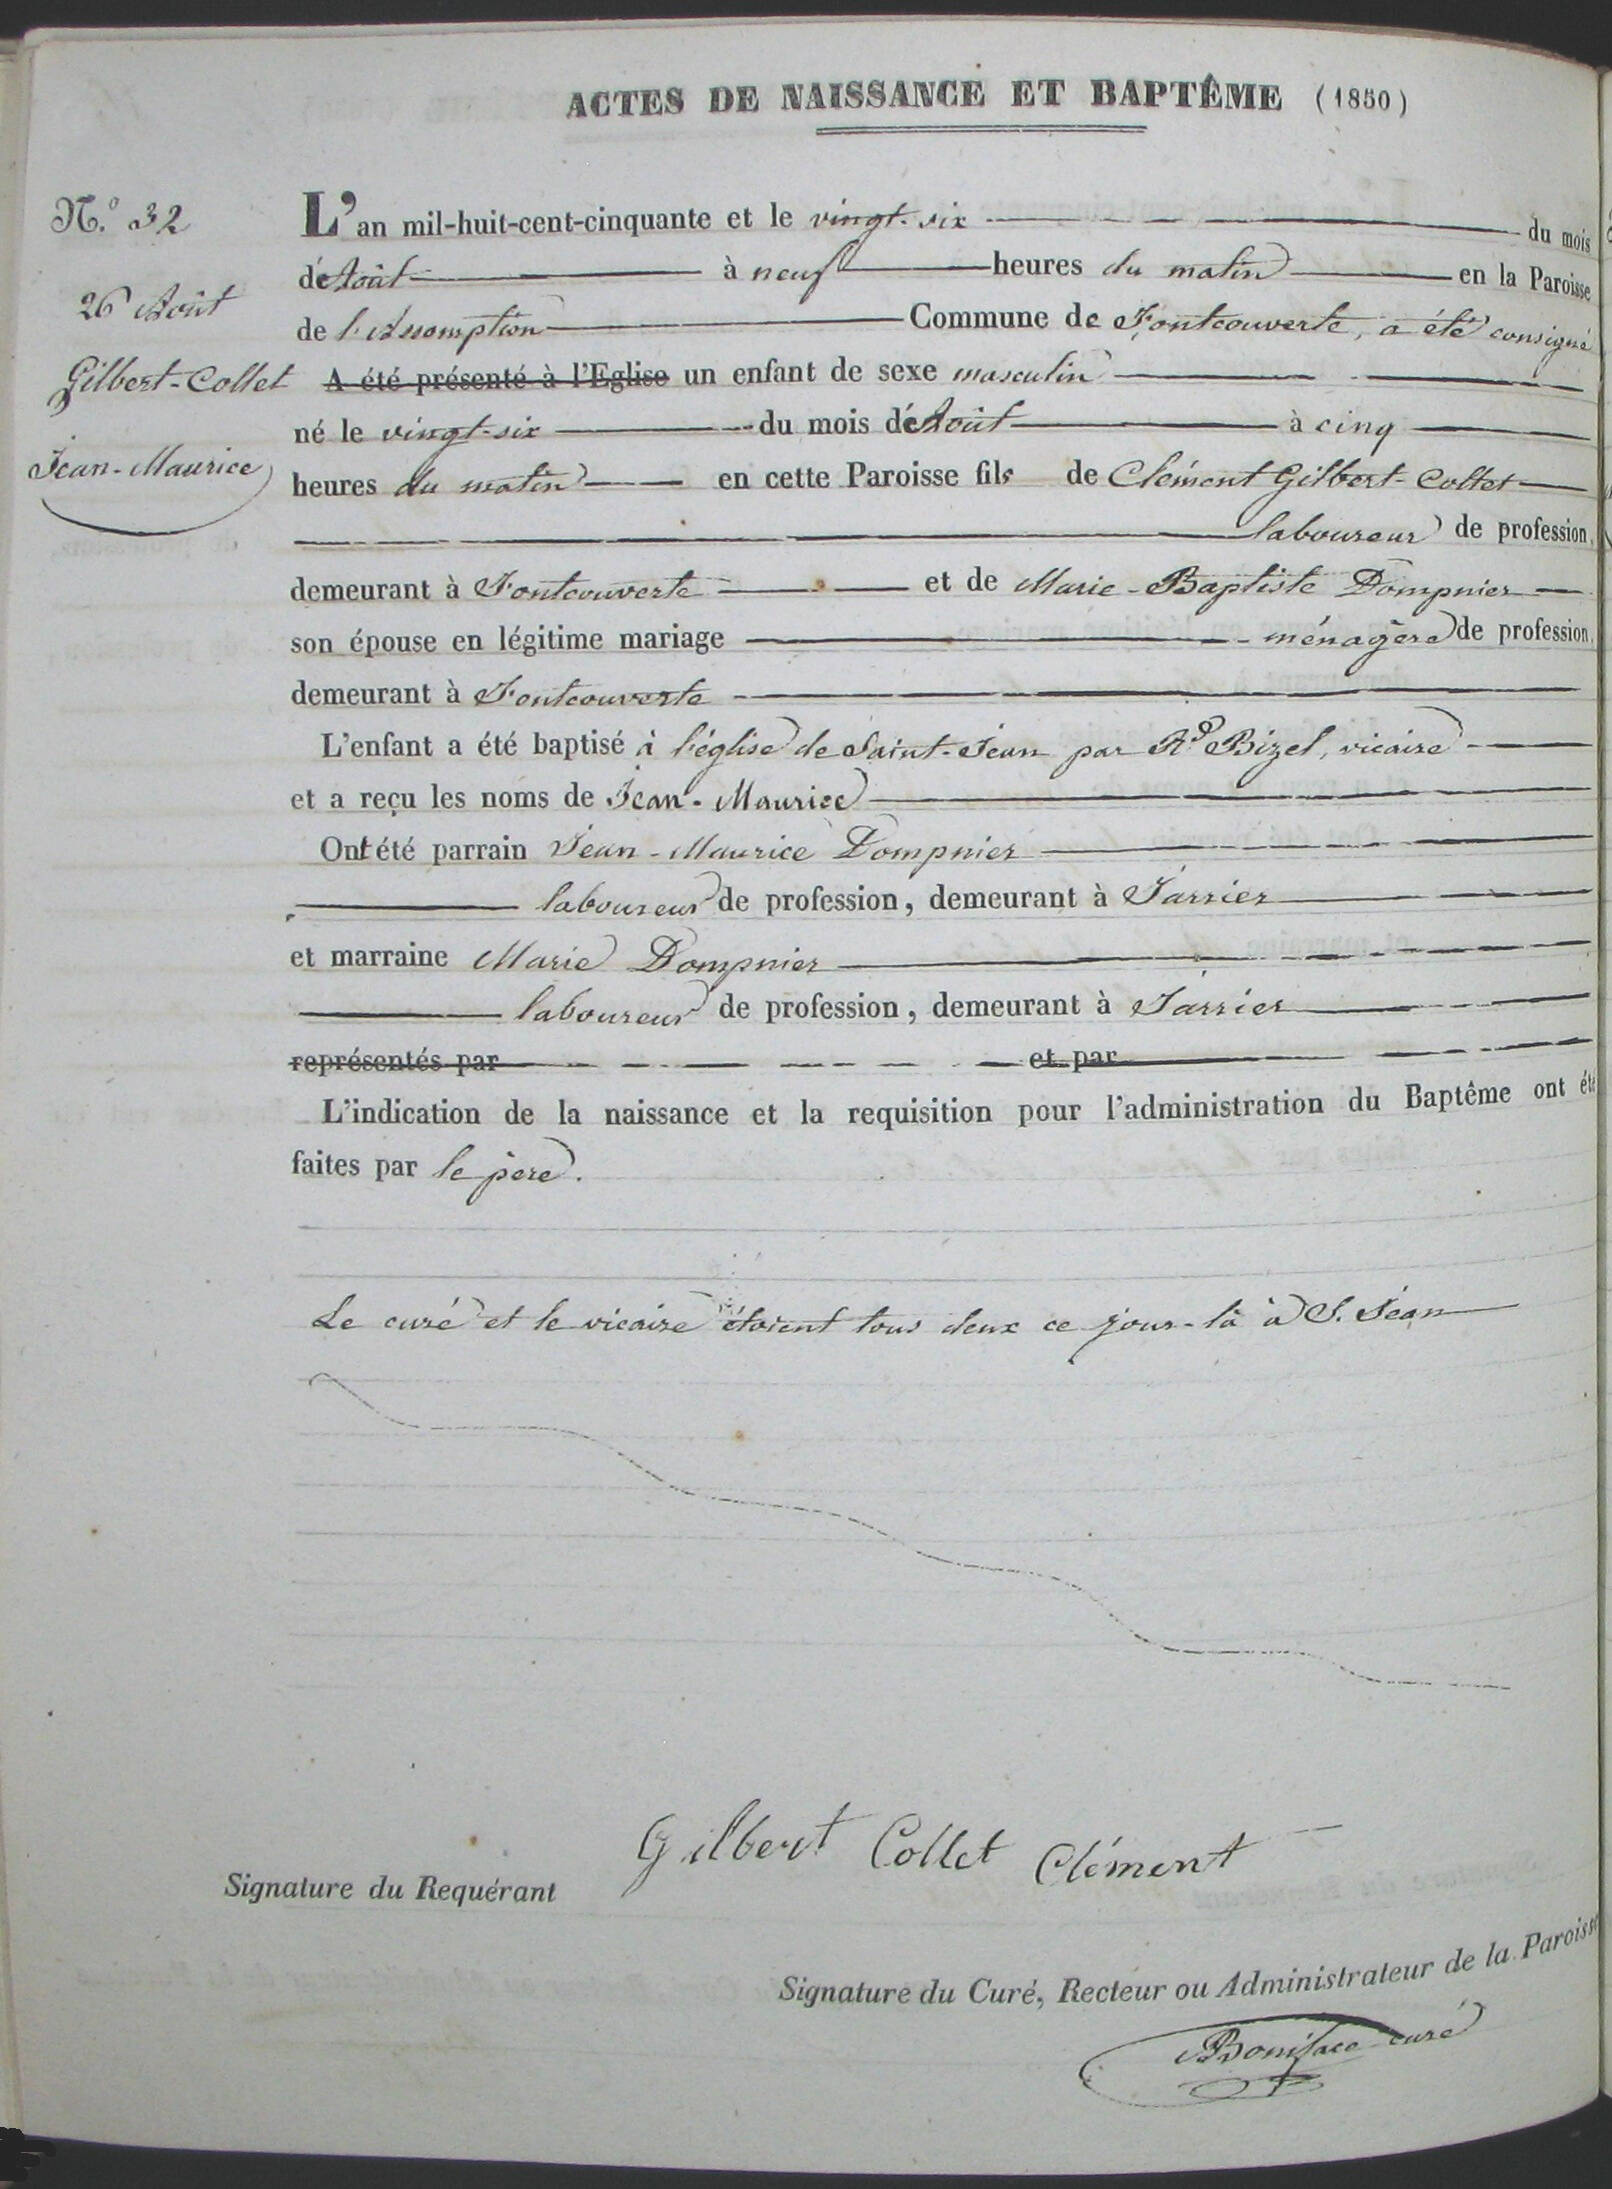 ACTES DE NAISSANCE ET BAPTÊME (1850)
N.º 32
26 Août
Gilbert-Collet
Jean-Maurice
L'an mil-huit-cent-cinquante et le vingt-six du mois
d'Août à neuf heures du matin en la Paroisse
de l'Assomption Commune de Fontcouverte, a été consigné
A été présenté à l'Eglise un enfant de sexe masculin
né le vingt-six du mois d'Août à cinq
heures du matin en cette Paroisse fils de Clément Gilbert-Collet
laboureur de profession,
demeurant à Fontcouverte et de Marie-Baptiste Dompnier
son épouse en légitime mariage ménagère de profession,
demeurant à Fontcouverte
L'enfant a été baptisé à l'église de Saint-Jean par Rd Bizel, vicaire
et a reçu les noms de Jean-Maurice
Ont été parrain Jean-Maurice Dompnier
laboureur de profession, demeurant à Jarrier
et marraine Marie Dompnier
laboureur de profession, demeurant à Jarrier
représentés par et par
L'indication de la naissance et la requisition pour l'administration du Baptême ont été
faites par le père.
Le curé et le vicaire étoient tous deux ce jour-là à S. Jean
Gilbert Collet Clément
Signature du Requérant
Signature du Curé, Recteur ou Administrateur de la Paroisse
Boniface curé